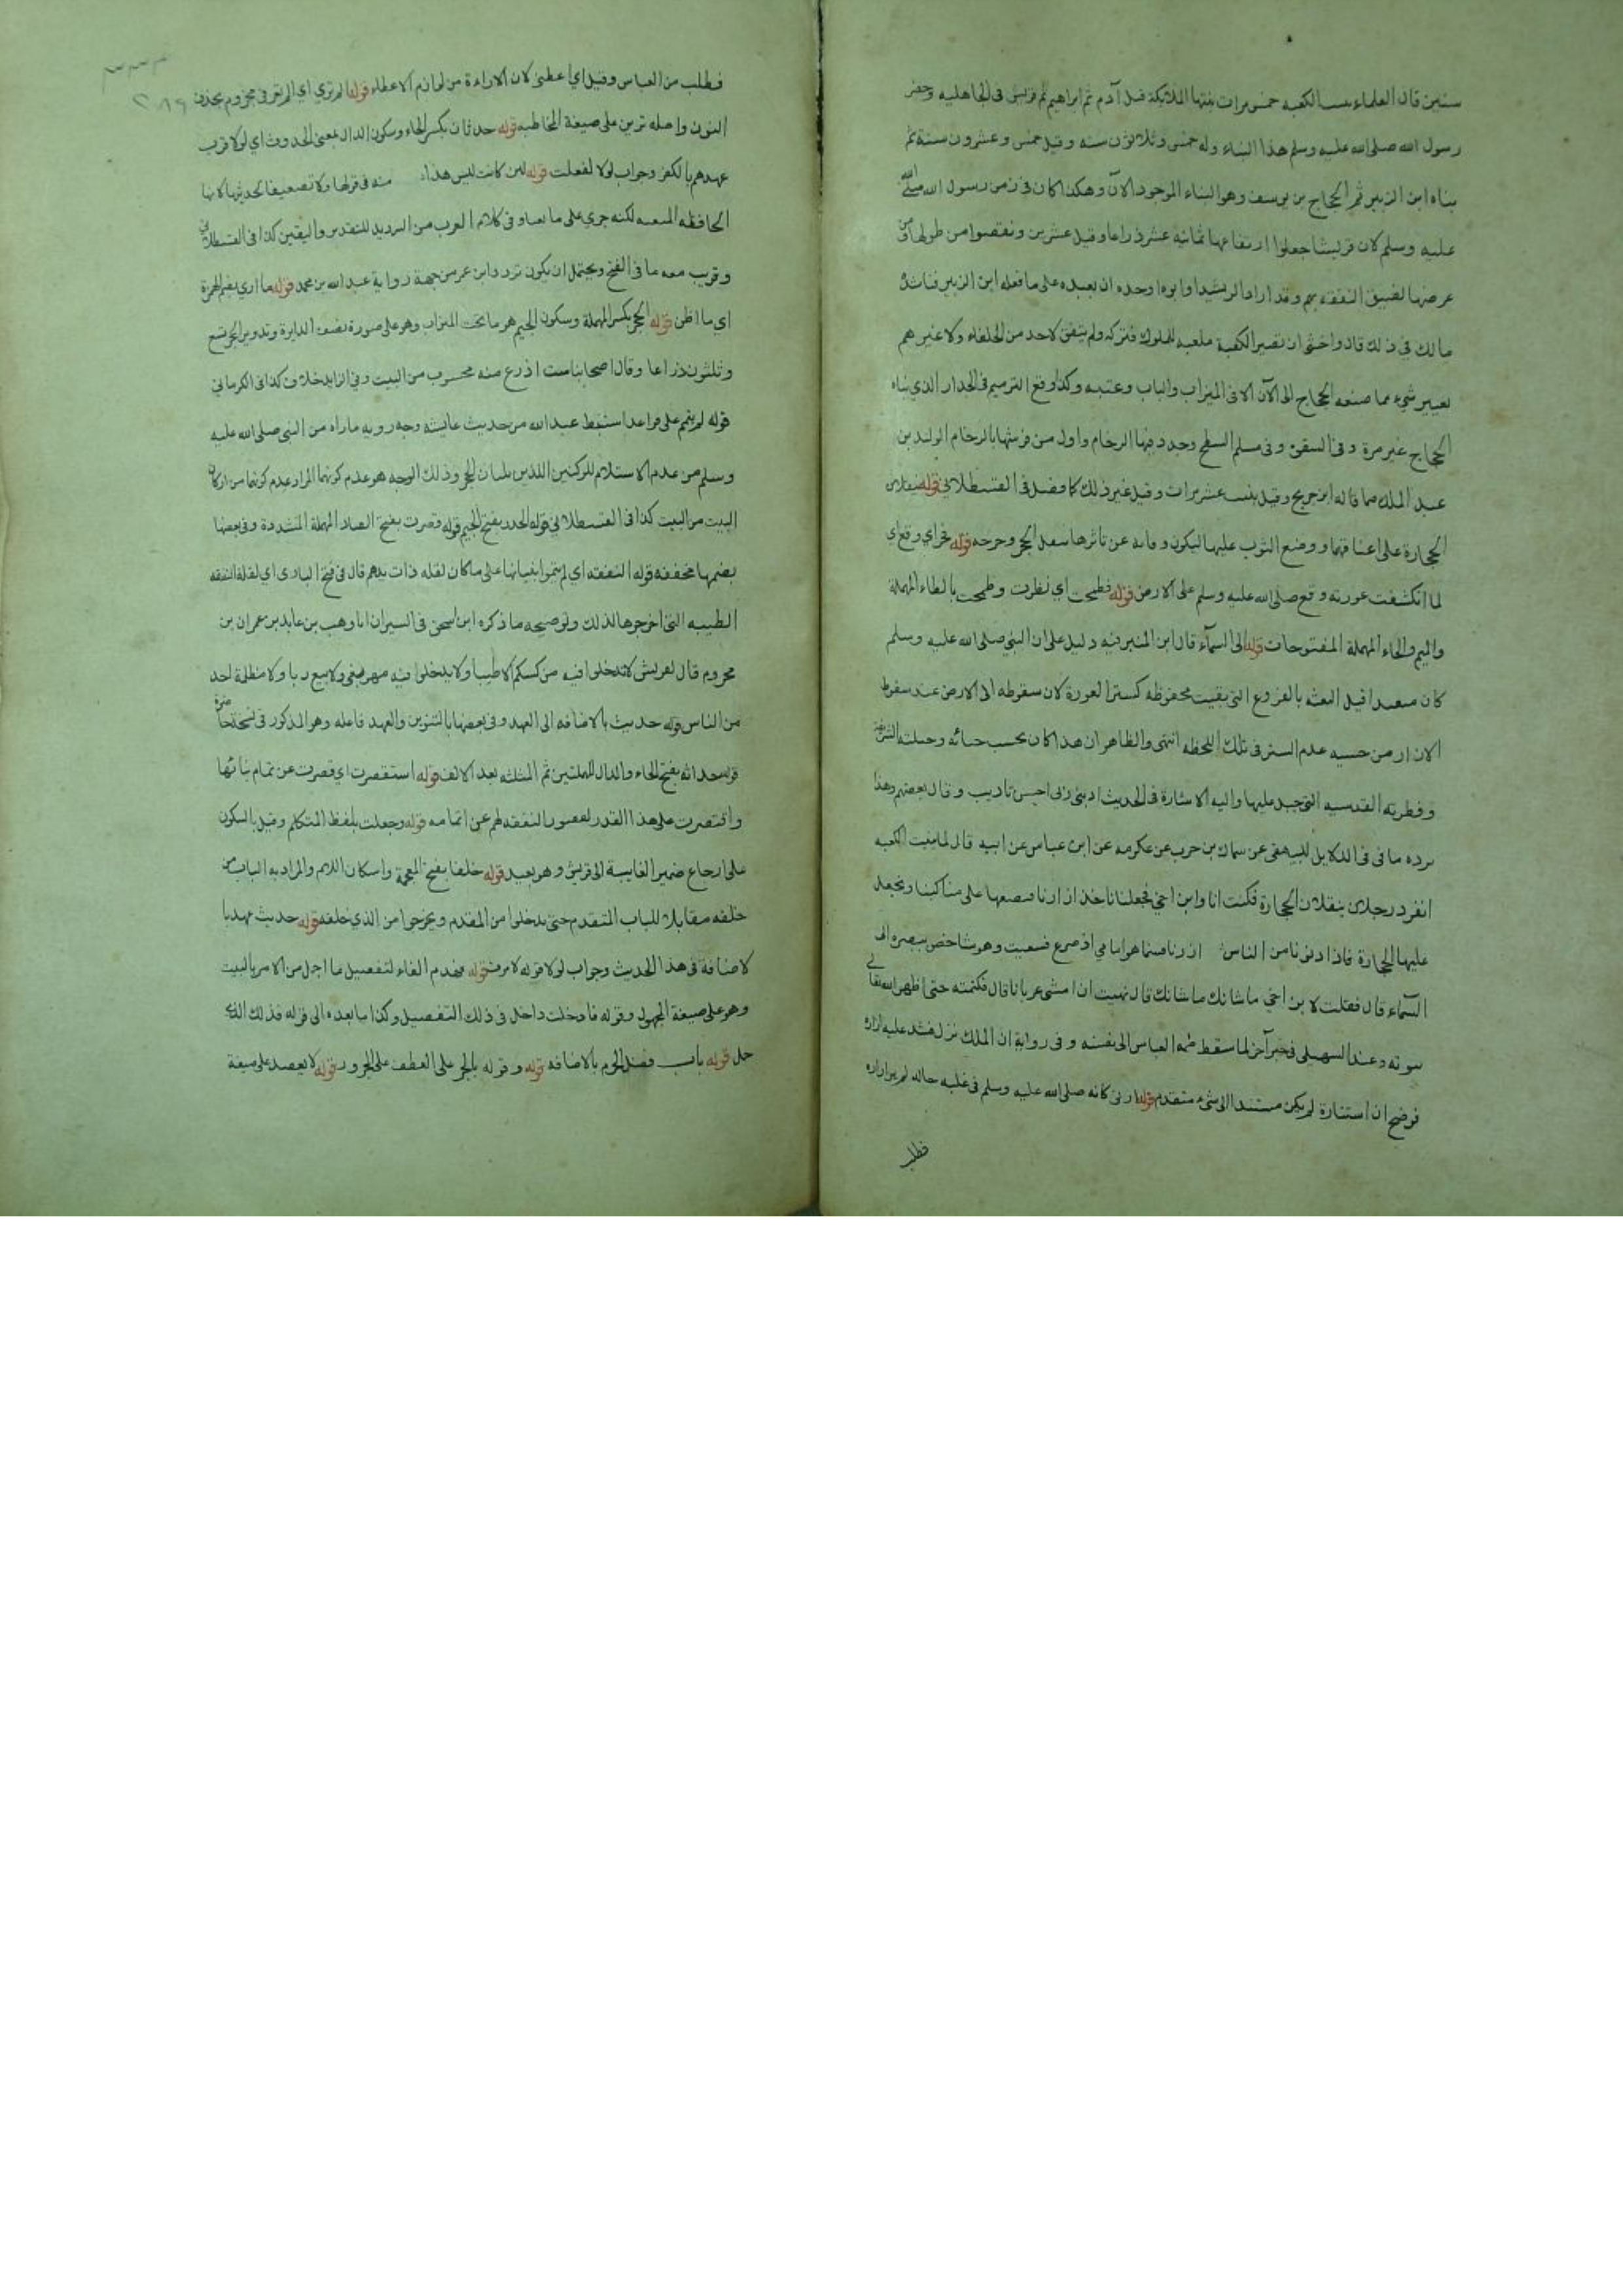 سنين قال العلماء بنيت الكعبه خمس مرات بنتها الملائكة قبل آدم ثم ابراهيم ثم قريش في الجاهليه وحضر
رسول الله صلى الله عليه وسلم هذا البناء وله خمس وثلاثون سنه وقيل خمس وعشرون سنة ثم
بناه ابن الزبير ثم الحجاج بن يوسف وهو البناء الموجود الآن وهكذا كان في زمن رسول الله صلى
عليه وسلم لان قريشا جعلوا ارتفاعها ثمانية عشر ذراعا وقيل عشرين ونقصوا من طولها من
عرضها لضيق النفقه بهم وقد اراد الرشيد او ابوه او جده ان يعيده على ما فعله ابن الزبير فناشده
مالك في ذلك قال واخشى ان تصير الكعبة ملعبه للملوك فتركه ولم يتفق لاحد من الخلفاء ولا غيرهم
تغيير شيء مما صنعه الحجاج الى الآن الا في الميزاب والباب وعتبه وكذا وقع الترميم في الجدار الذي بناه
الحجاج غير مرة وفي السقف وفي سلم السطح وجدد فيها الرخام واول من فرشها بالرخام الوليد بن
عبد الملك فيما قاله ابن جريج وقيل بنيت عشر مرات وقيل غير ذلك كما فصل في القسطلاني قوله ينقلان
الحجارة على اعناقهما ووضع الثوب عليها ليكون وقايه عن تاثرها بثقل الحجر وجرحه قوله فخر اي وقع اي
لما انكشفت عورته وقع صلى الله عليه وسلم على الارض قوله فطمحت اي نظرت وطمحت بالطاء المهملة
والميم والحاء المهملة المفتوحات قوله الى السماء قال ابن المنير فيه دليل على ان النبي صلى الله عليه وسلم
كان متعبدا قبل البعثه بالفروع التي بقيت محفوظه كستر العورة لان سقوطه الى الارض عند سقوط
الازار من خشيه عدم الستر في تلك اللحظه انتهى والظاهر ان هذا كان بحسب حيائه وجبلته الشريفه
وفطرته القدسيه التي جبل عليها واليه الاشارة في الحديث ادبني ربي احسن تاديب وقال بعضهم وهذا
يرده ما في في الدلايل للبيهقي عن سماك بن حرب عن عكرمه عن ابن عباس عن ابيه قال لما بنيت الكعبه
انفرد رجلان رجلان ينقلان الحجارة فكنت انا وابن اخي فجعلنا ناخذ ازارنا فنضعها على مناكبنا ونجعل
عليها الحجارة فاذا دنونا من الناس ازرنا فبينا هو امامي اذ صرع فسعيت وهو شاخص ببصره الى
السماء قال فقلت لابن اخي ما شانك ما شانك قال نهيت ان امشي عريانا قال فكتمته حتى اظهر الله تعالى
نبوته وعند السهيلي في خبر آخر لما سقط ضمه العباس الى نفسه وفي رواية ان الملك نزل فشد عليه ازاره
فوضح ان استتاره لم يكن مستندا الى شيء متقدم قوله ارني كانه صلى الله عليه وسلم في غلبه حاله لم ير ازاره
فطلب
٢٨٩
فطلب من العباس وقيل اي اعطني لان الاراءة من لوازم الاعطاء قوله الم تري اي الم تعرفي مجزوم بحذف
النون واصله ترين على صيغة المخاطبه قوله حدثان بكسر الحاء وسكون الدال بمعنى الحدوث اي لولا قرب
عهدهم بالكفر وجواب لولا لفعلت قوله لئن كانت ليس هذا منه في قولها ولا تضعيفا لحديثها لانها
الحافظه المتقنه لكنه جري على ما يعتاد في كلام العرب من الترديد للتقدير واليقين كذا في القسطلاني
وقريب معه ما في الفتح ويحتمل ان يكون تردد ابن عمر من جهة رواية عبد الله بن محمد قوله ما اري بضم الهمزة
اي ما اظن قوله الحجر بكسر المهملة وسكون الجيم هو ما تحت الميزاب وهو على صورة نصف الدايرة وتدوير الحجر تسع
وثلثون ذراعا وقال اصحابنا ست اذرع منه محسوب من البيت وفي الزايد خلاف كذا في الكرماني
قوله لم يتم على قواعد استنبط عبد الله من حديث عايشه وجه رويه ما راه من النبي صلى الله عليه
وسلم من عدم الاستلام للركنين اللذين يليان الحجر وذلك الوجه هو عدم كونهما المراد عدم كونهما من اركان
البيت من البيت كذا في القسطلاني قوله الجدر بفتح الجيم قوله قصرت بفتح الصاد المهملة المشددة وفي بعضها
بضمها مخففه قوله النفقه اي لم يتموا بنيانها على ما كان لقله ذات يدهم قال في فتح الباري اي لقلة النفقه
الطيبه التي اخرجوها لذلك وتوضيحه ما ذكره ابن اسحق في السير ان ابا وهب بن عابد بن عمران بن
مخزوم قال لقريش لا تدخلوا فيه من كسبكم الا طيبا ولا يدخلوا فيه مهر بغي ولا بيع ربا ولا مظلمة احد
من الناس قوله حديث بالاضافه الى العهد وفي بعضها بالتنوين والعهد فاعله وهو المذكور في نسختنا
قوله حداثه بفتح الحاء والدال المهملتين ثم المثلثه بعد الالف قوله استقصرت اي قصرت عن تمام بنائها
واقتصرت على هذا القدر لقصور النفقه لهم عن اتمامه قوله وجعلت بلفظ المتكلم وقيل بالسكون
على ارجاع ضمير الغايبة الى قريش وهو بعيد قوله خلفا بفتح المعجمة واسكان اللام والمراد به الباب من
خلفه مقابلا للباب المتقدم حتى يدخلوا من المقدم ويخرجوا من الذي خلفه قوله حديث عهد با
لاضافة في هذا الحديث وجواب لولا قوله لامرت قوله فهدم الفاء لتفصيل ما اجمل من الامر بالبيت
وهو على صيغة المجهول وقوله فادخلت داخل في ذلك التفصيل وكذا ما بعده الى قوله فذلك الذي
حل قوله باب فضل الحرم بالاضافه قوله وقوله بالجر على العطف على المجرور قوله لا يعضد على صيغة